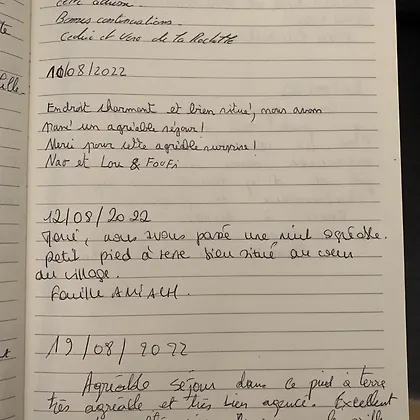 Bonnes continuations.
Cedric et Vero de la Rochette
10/08/2022
Endroit charmant et bien situé, nous avons
passé un agréable séjour!
Merci pour cette agréable surprise!
Nao et Lou & Foufi
12/08/2022
nous avons passé une nuit agréable.
petit pied à terre bien situé au coeur
du village.
Famille
19/08/2022
Agréable séjour dans ce pied à terre
très agréable et très bien agencé. Excellent